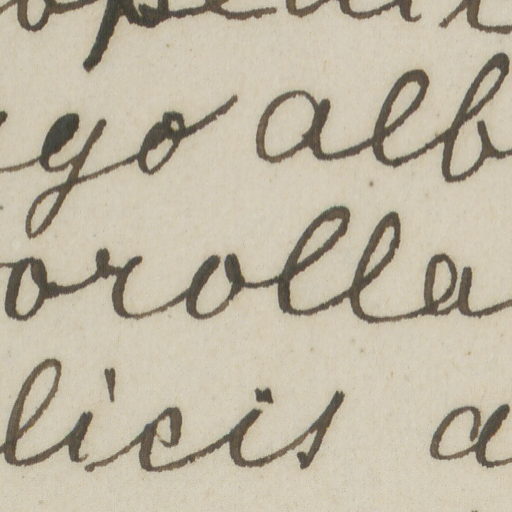 go alb
orolla
licis a